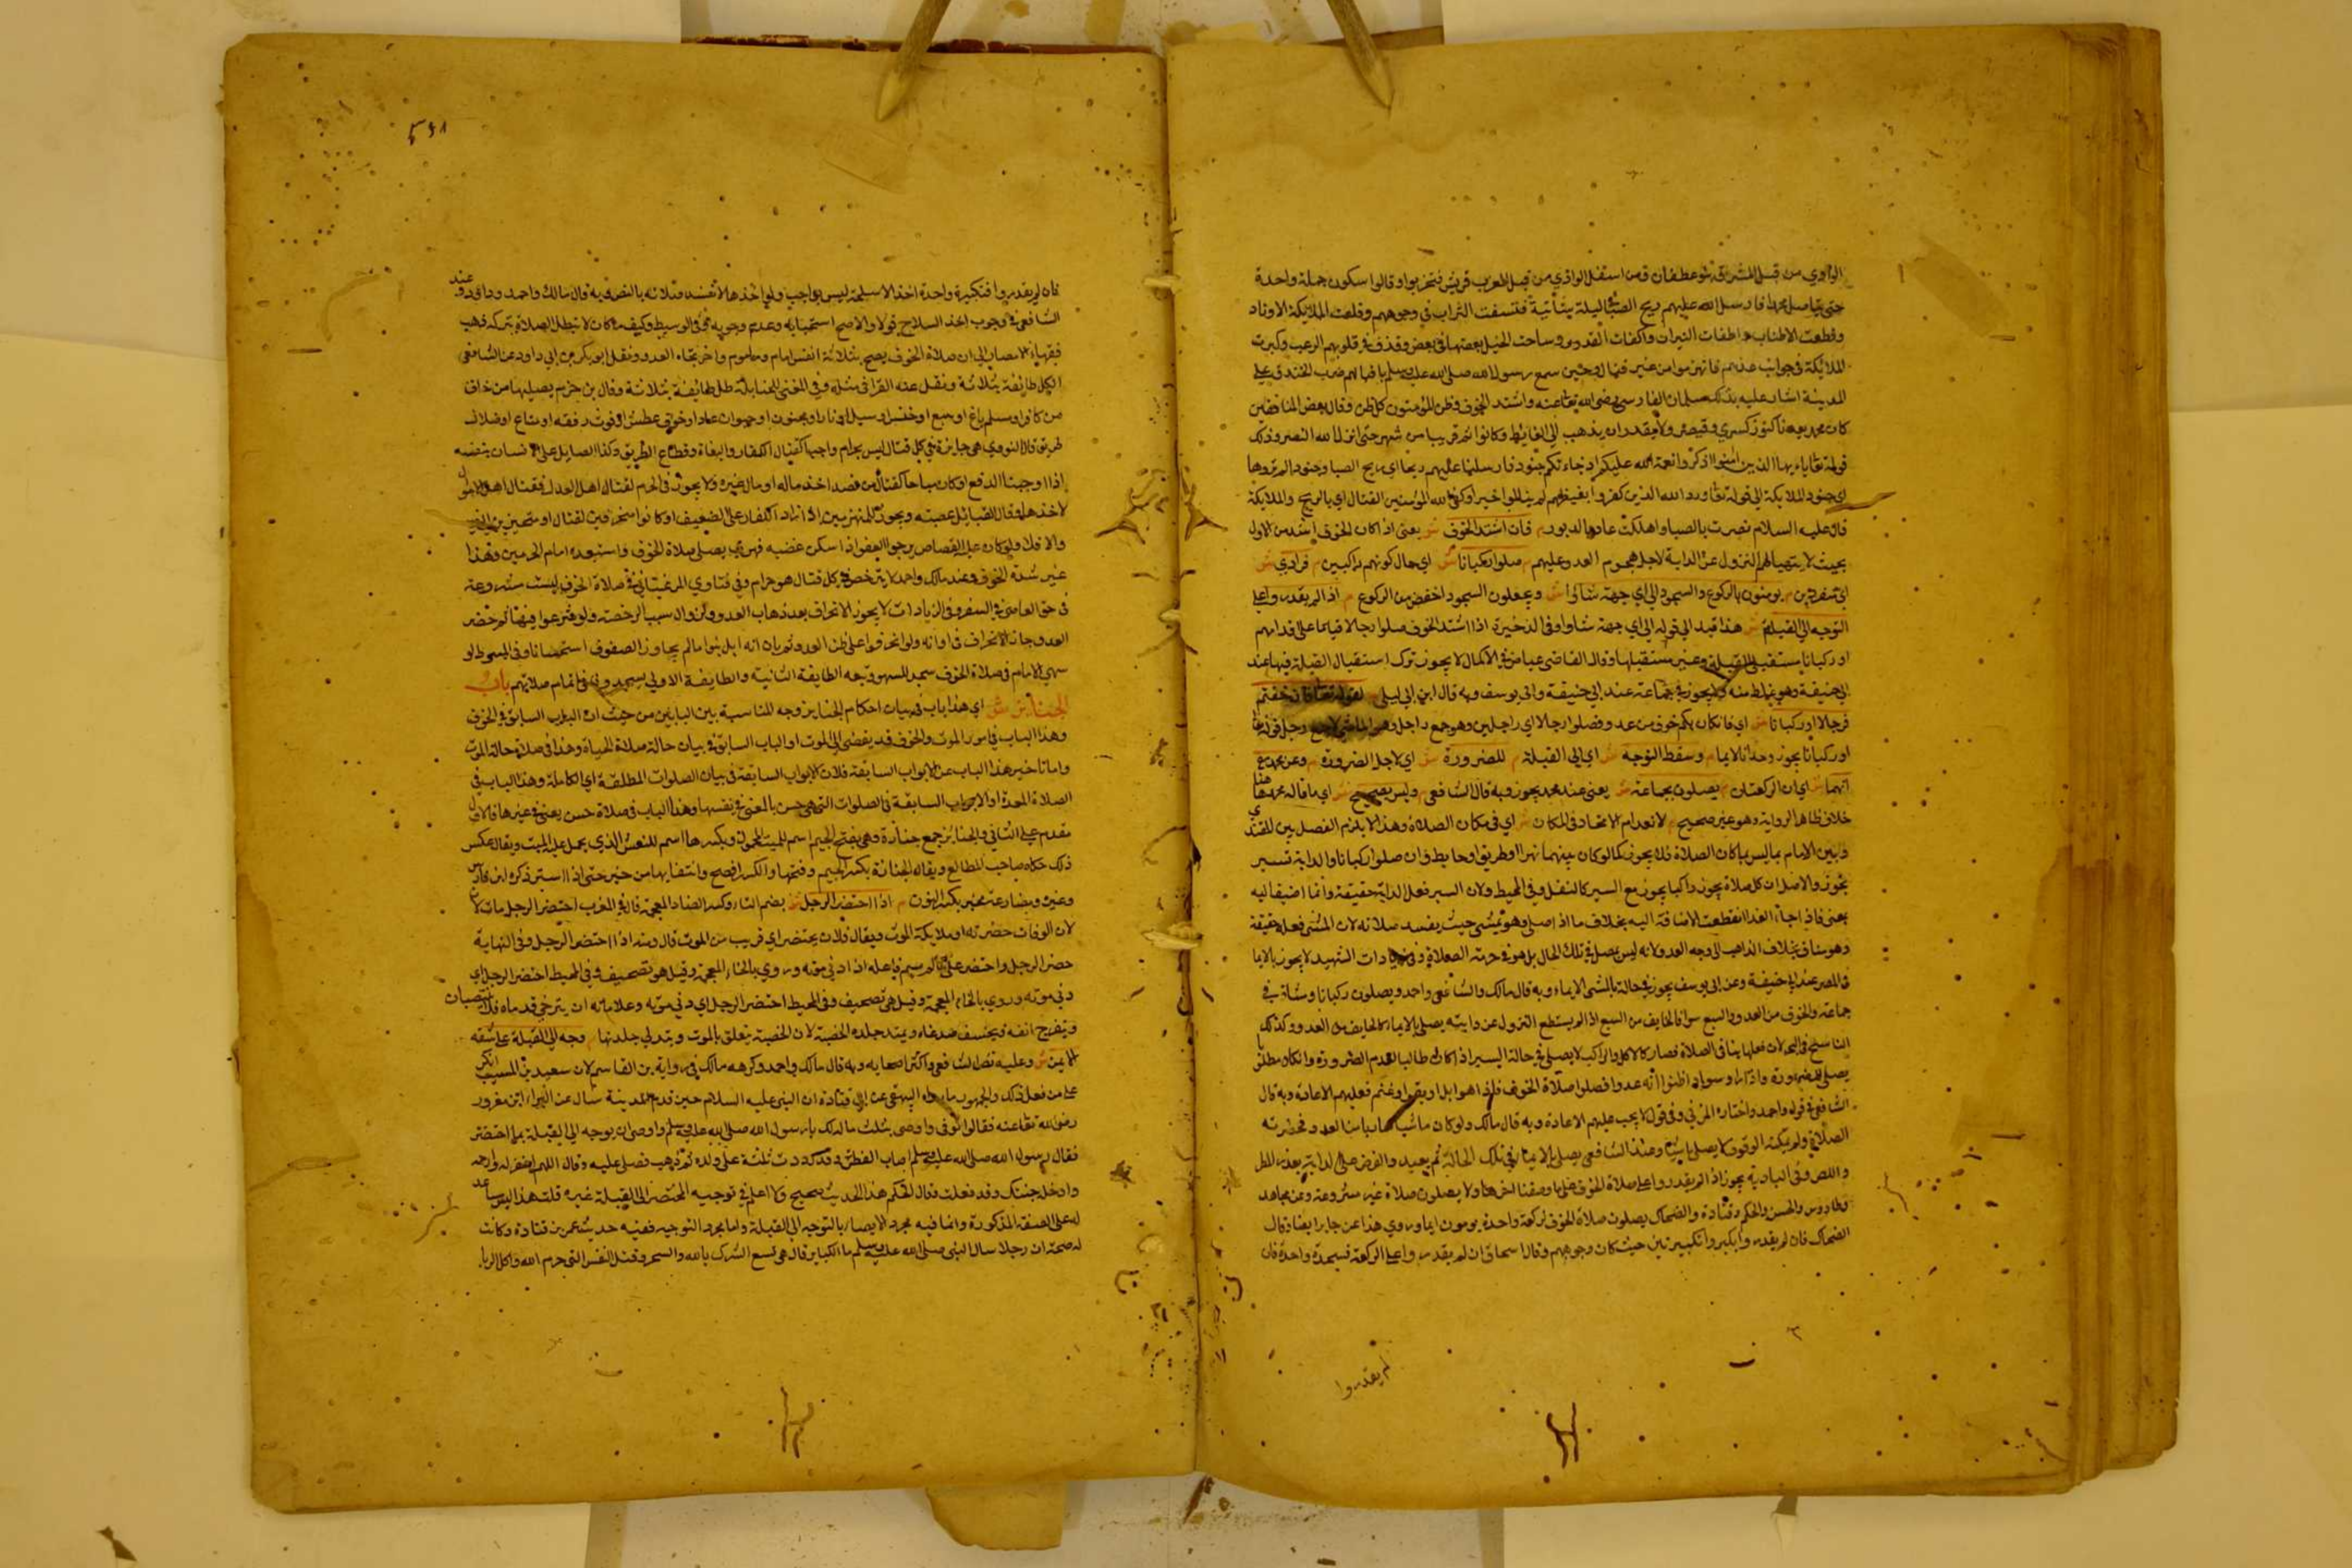 الوادي من قبل المشرق بنو غطفان ومن اسفل الوادي من قبل المغرب قريش فتحزبوا وقالوا سنكون جملة واحدة
حتى نستاصل محمدا فارسل الله عليهم ريح الصبا في ليلة شاتية فنسفت التراب في وجوههم وقلعت الملائكة الاوتاد
وقطعت الاطناب واطفات النيران واكفات القدور وماجت الخيل بعضها في بعض وقذف في قلوبهم الرعب وكبرت
الملائكة في جوانب عسكرهم فانهزموا من غير قتال وحين سمع رسول الله صلى الله عليه وسلم باقبالهم ضرب الخندق على
المدينة اشار عليه بذلك سلمان الفارسي رضي الله تعالى عنه واشتد الخوف وظن المؤمنون كل ظن وقال بعض المنافقين
كان محمد يعدنا كنوز كسري وقيصر ولا نقدر ان نذهب الي الغايط وكانوا قريبا من شهر حتى انزل الله النصر وذلك
قوله تعالى يا ايها الذين امنوا اذكروا نعمة الله عليكم اذ جاءتكم جنود فارسلنا عليهم ريحا اي ريح الصبا وجنودا لم تروها
اي جنود الملايكة الي قوله تعالى ورد الله الذين كفروا بغيظهم لم ينالوا خيرا وكفى الله المؤمنين القتال اي بالريح والملايكة
قال عليه السلام نصرت بالصبا واهلكت عاد بالدبور م فان اشتد الخوف ش يعني اذا كان الخوف اشد من الاول
بحيث لا يتهيا لهم النزول عن الدابة لاجل هجوم العدو عليهم م صلوا ركبانا ش اي حال كونهم راكبين م فرادي ش
اي منفردين م يومئون بالركوع والسجود الي اي جهة شاؤا ش ويجعلون السجود اخفض من الركوع م اذا لم يقدروا على
التوجه الي القبلة ش هذا قيد الي قوله الي اي جهة شاؤا وفي الذخيرة اذا اشتد الخوف صلوا رجالا قياما على اقدامهم
او ركبانا مستقبلي القبلة وغير مستقبليها وقال القاضي عياض في الاكمال لا يجوز ترك استقبال القبلة فيها عند
ابي حنيفة وهو غلط منه ولا يجوز بجماعة عند ابي حنيفة وابي يوسف وبه قال ابن ابي ليلى م لقوله تعالى فان خفتم
فرجالا او ركبانا ش اي فان كان بكم خوف من عدو فصلوا رجالا اي راجلين وهو جمع راجل
او ركبانا يجوز وحدانا لايما م وسقط التوجه ش اي الي القبلة م للضرورة ش اي لاجل الضرورة م وعن محمد
انهما ش اي ان الركعتان م يصلون بجماعة ش يعني عند محمد يجوز وبه قال الشافعي م وليس بصحيح ش اي ما قاله محمد هذا
خلاف ظاهر الرواية وهو غير صحيح م لانعدام الاتحاد في المكان ش اي في مكان الصلاة وهذا لا يلزم الفصل بين المقتدي
وبين الامام ما ليس مكان الصلاة فلا يجوز كما لو كان بينهما نهر او طريق او حايط وان صلوا ركبانا والدابة تسير
يجوز والاصل ان كل صلاة يجوز راكبا يجوز مع السير كالنفل وفي المحيط ولان السير فعل الدابة حقيقة وانما اضيف اليه
معنى فاذا جاء العذر انقطعت الاضافة اليه بخلاف ما اذا صلى وهو يمشي حيث يفسد صلاته لان المشي فعله حقيقة
وهو مناف بخلاف الذاهب الى وجه العدو لانه ليس يصلي في تلك الحال بل هو في حرمة الصلاة وفي زيادات الشهيد لا يجوز بالايما
في المصر عند ابي حنيفة وعن ابي يوسف يجوز في حالة المشي الايماء وبه قال مالك والشافعي واحمد ويصلون ركبانا ومشاة في
جماعة والخوف من العدو والسبع سوا فالخايف من السبع اذا لم يستطع النزول عن دابته يصلي بالايماء كالخايف من العدو وكذلك
السابح في البحر لان فعلها ينافي الصلاة فصار كالاكل والراكب لا يصلي في حالة السير اذا كان طالبا لعدم الضرورة وان كان مطلوبا
يصلي للضرورة واذا راوا سوادا فظنوا انه عدو فصلوا صلاة الخوف فاذا هو ابل او بقر او غنم فعليهم الاعادة وبه قال
الشافعي في قوله واحمد واختاره المزني وفي قول لا يجب عليهم الاعادة وبه قال مالك
والحسن والحكم وقتادة والضحاك يصلون صلاة الخوف ركعة واحدة يومون ايماء وروي هذا عن جابر ايضا وقال
الضحاك فان لم يقدروا يكبروا تكبيرتين حيث كان وجوههم وقال اسحاق ان لم يقدروا على الركعة فسجدة واحدة فان
لم يقدروا
فان لم يقدروا فتكبيرة واحدة اخذ الاسلحة ليس بواجب ولو اخذها لا تفسد صلاته بالنص وبه قال مالك واحمد وداود وعند
الشافعي في وجوب اخذ السلاح قولان والاصح استحبابه وعدم وجوبه في الوسيط وكيف ما كان لا تبطل الصلاة بتركه ذهب
فقهاء الامصار الي ان صلاة الخوف يصح بثلاثة انفس امام وماموم واخر تجاه العدو ونقل ابو بكر بن ابي داود عن الشافعي
لكل طائفة بثلاثة ونقل عنه القرافي مثله وفي المغني للحنابلة كل طايفة بثلاثة وقال بن حزم يصليها من خاف
من كافر او مسلم باغ او سبع او خنس او سيل او نار او مجنون او حيوان عاد او خوف عطش او فوت رفقه او متاع او ضلال
طريق قال النووي هي جايزة في كل قتال ليس بحرام واجبا كقتال الكفار والبغاة وقطاع الطريق وكذا الصايل على الانسان بنفسه
اذا اوجبنا الدفع او كان مباحا كقتال من قصد اخذ ماله او مال غيره ولا يجوز في الحرام لقتال اهل العدل وقتال اهل الاموال
لاخذها وقتال القبائل عصبية ويجوز للمنهزمين اذا زاد الكفار على الضعف او كانوا متحرفين لقتال او متحيزين
والا فلا ولو كان عليه القصاص يرجوا العفو اذا سكن غضبه فهرب يصلي صلاة الخوف واستبعده امام الحرمين وهذا
غير شدة الخوف وعند مالك واحمد لا يترخص في كل قتال هو حرام وفي فتاوي المرغيناني صلاة الخوف ليست مشروعة
في حق العاصي في السفر وفي الزيادات لا يجوز الانحراف بعد ذهاب العدو وزوال سبب الرخصة ولو شرعوا فيها ثم حضر
العدو جاز الانحراف في اوانه ولو انحرفوا على ظن العدو ثم بان انه ابل بنوا ما لم يجاوز الصفوف استحسانا وفي المبسوط لو
سهى الامام في صلاة الخوف سجد للسهو وتبعه الطايفة الثانية والطايفة الاولى يسجدون في اتمام صلاتهم باب
الجنائز ش اي هذا باب في بيان احكام الجنايز وجه المناسبة بين البابين من حيث ان الباب السابق في الخوف
وهذا الباب في امور الموت والخوف قد يفضي الي الموت او الباب السابق في بيان حالة صلاة الحياة وهذا في صلاة حالة الموت
واما تاخير هذا الباب عن الابواب السابقة فلان الابواب السابقة في بيان الصلوات المطلقة اي الكاملة وهذا الباب في
الصلاة المقيدة او الابواب السابقة في الصلوات التي هي حسن بالمعنى في نفسها وهذا الباب في صلاة حسن بمعنى في غيرها والاول
مقدم على الثاني والجنائز جمع جنازة وهي بفتح الجيم اسم للميت المحمول وبكسرها اسم للنعش الذي يحمل عليه الميت ويقال عكس
ذلك حكاه صاحب المطالع ويقال الجنازة بكسر الجيم وفتحها والكسر افصح واشتقاقها من جنز حتى اذا ستر ذكره ابن فارس
وغيره ومضارعه يجنز بكسر النون م اذا احتضر الرجل ش بضم التاء وكسر الضاد المعجمة قال في المغرب احتضر الرجل مات لان
لان الوفاة حضرته او ملايكة الموت ويقال فلان محتضر اي قريب من الموت قال ومنه اذا احتضر الرجل وفي النهاية
حضر الرجل واحتضر على ما لم يسم فاعله اذا دنى موته وروي بالخاء المعجمة وقيل هو تصحيف وفي المحيط احتضر الرجل اي
دنى موته وروي بالخاء المعجمة وقيل هي تصحيف وفي المحيط احتضر الرجل اي دنى موته وعلاماته ان يترخى قدماه فلا ينتصبان
ويتعوج انفه ويخسف صدغاه ويمتد جلده الخصية لان الخصية يتعلق بالموت ويتدلى جلدتها م وجه الي القبلة على شقه
الايمن ش وعليه نص الشافعي واكثر اصحابه وبه قال مالك واحمد وكرهه مالك في رواية بن القاسم لان سعيد بن المسيب انكر
على من فعل ذلك والجمهور ما رواه البيهقي عن ابي قتادة ان النبي عليه السلام حين قدم المدينة سال عن البراء ابن معرور
رضي الله تعالى عنه فقالوا توفى واوصى بثلث ماله لك يا رسول الله صلى الله عليه وسلم واوصى ان يوجه الي القبلة لما احتضر
فقال رسول الله صلى الله عليه وسلم اصاب الفطرة وقد رددت ثلثه على ولده ثم ذهب فصلى عليه وقال اللهم اغفر له وارحمه
وادخله جنتك وقد فعلت وقال الحاكم هذا الحديث صحيح ولا اعلم في توجيه المحتضر الي القبلة غيره قلت هذا ليس
على الصفة المذكورة وانما فيه مجرد الايصاء بالتوجه الي القبلة واما مجرد التوجيه ففيه حديث عمر بن قتادة وكانت
له صحبة ان رجلا سال النبي صلى الله عليه وسلم ما الكبائر قال هي تسع الشرك بالله والسحر وقتل النفس التي حرم الله واكل الربا